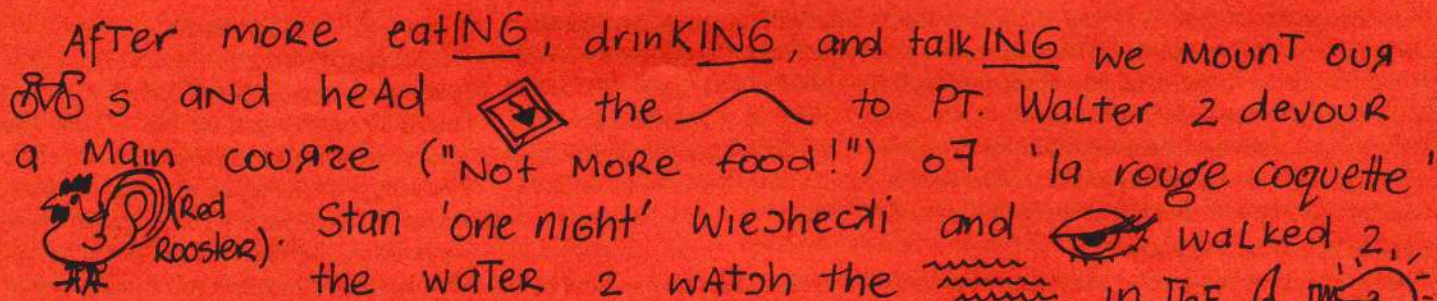 AfTer moRe eatING, drinKING, and talkING we MounT ouЯ
s aNd heAd the to PT. WaLter 2 devouR
a Main couЯze ("Not MoRe food!") oF 'la rouge coquette'
(Red Rooster). Stan 'one niGht' Wiecheck​i and walked 2
the waTeR 2 wAtch the in THE